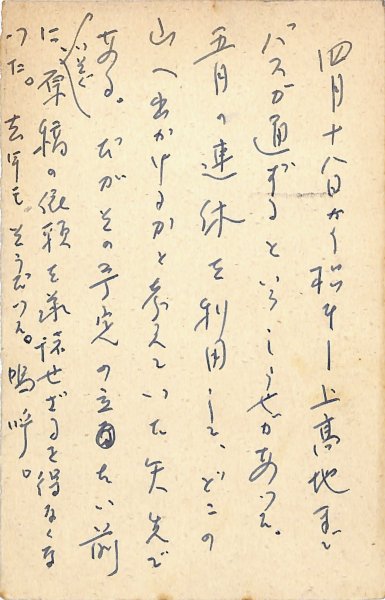 四月十八日から松本―上高地まで
バスが通ずるというしらせがあった。
五月の連休を利用して、どこの
山へ出かけるかと考えていた矢先で
ある。だがその予定の立たない前
に、いそぎ原稿の依頼を承諾せざるを得なくな
った。去年もそうだった。嗚呼。